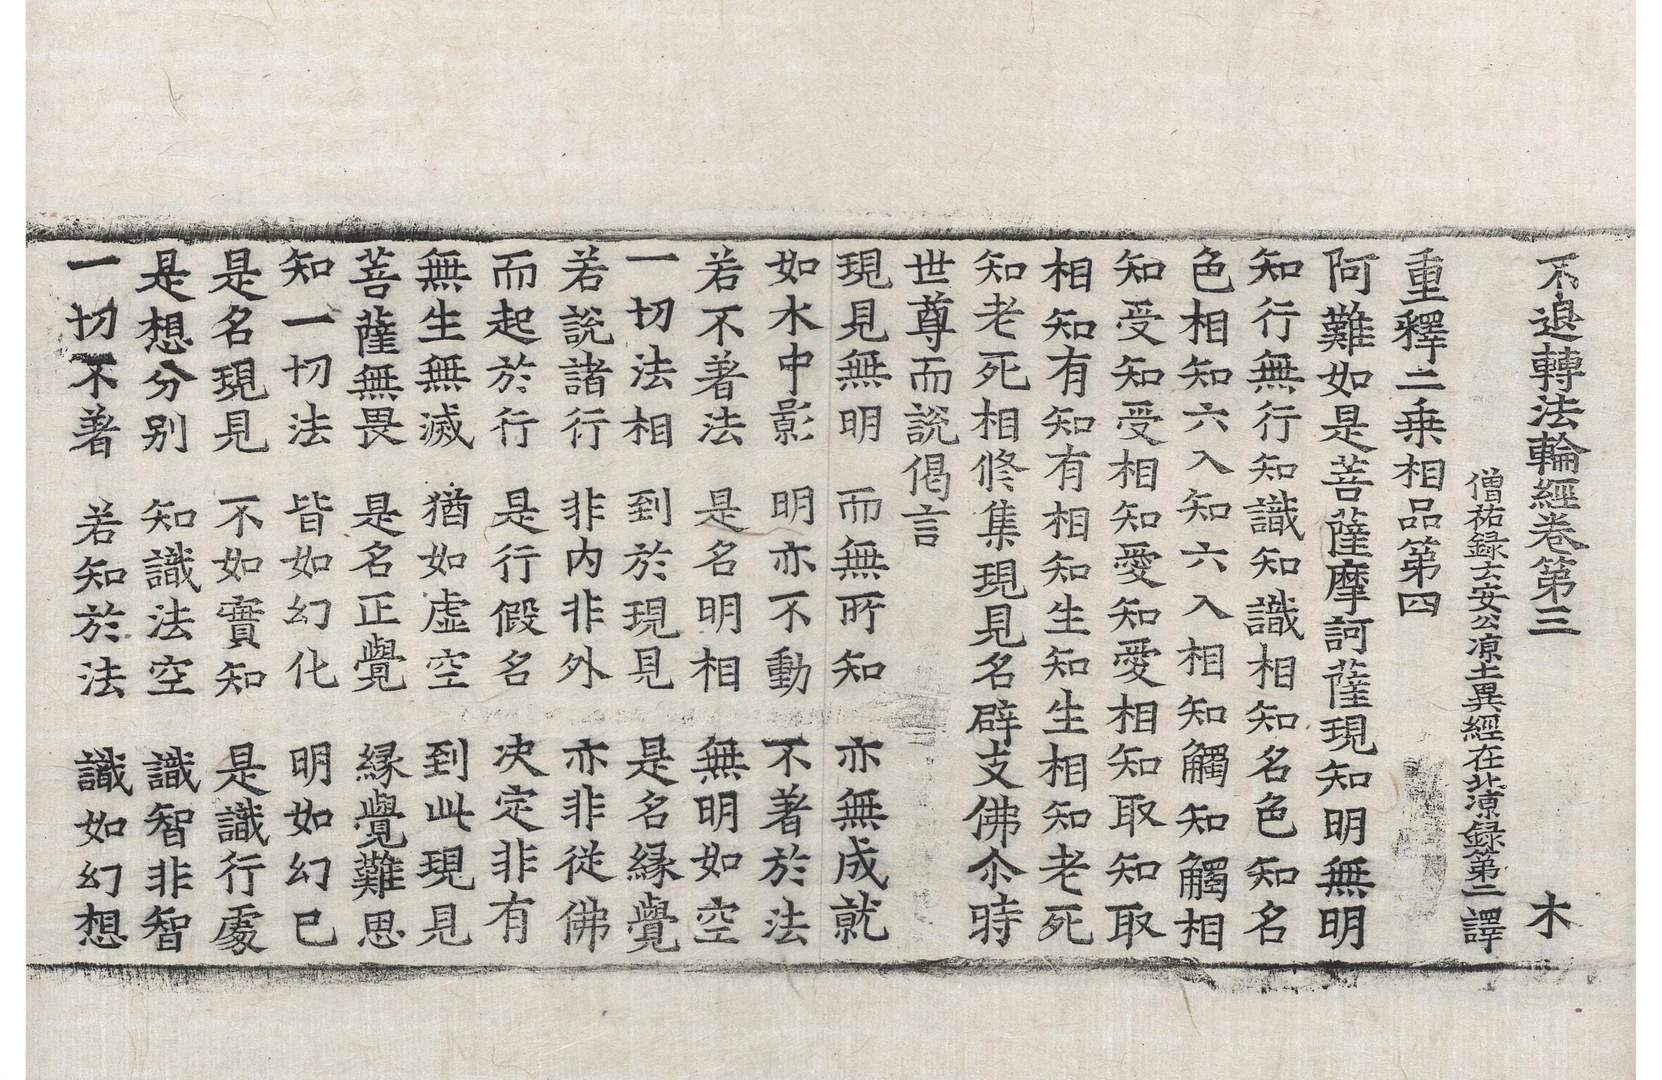 不退轉法輪經卷第三 木
僧祐録云安公凉土異經在北凉録第二譯
重釋二乗相品第四
阿難如是菩薩摩訶薩現知明無明
知行無行知識知識相知名色知名
色相知六入知六入相知觸知觸相
知受知受相知愛知愛相知取知取
相知有知有相知生知生相知老死
知老死相修集現見名辟支佛尒時
世尊而說偈言
現見無明 而無所知 亦無成就
如水中影 明亦不動 不著於法
若不著法 是名明相 無明如空
一切法相 到於現見 是名縁覺
若說諸行 非內非外 亦非從佛
而起於行 是行假名 决定非有
無生無滅 猶如虛空 到此現見
菩薩無畏 是名正覺 縁覺難思
知一切法 皆如幻化 明如幻已
是名現見 不如實知 是識行處
是想分別 知識法空 識智非智
一切不著 若知於法 識如幻想